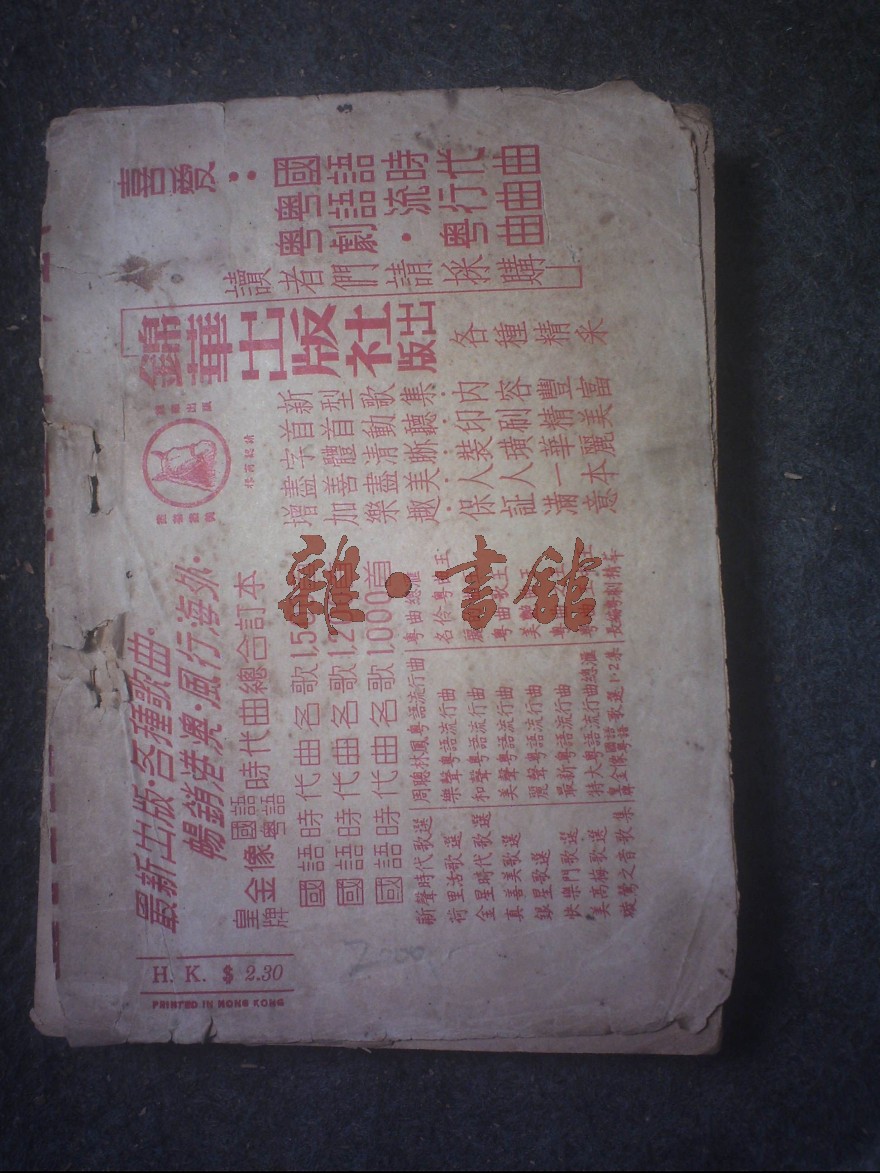 喜愛：
國語時代曲
粵語流行曲
粵劇·粵曲
讀者們請採購
錦華出版社出版
各種精采
新型歌集·內容豐富
首首動聽·印刷精美
字體清晰·裝璜華麗
盡善盡美·人人一本
增加樂趣·保証滿意
最新出版·各種歌曲·
暢銷港澳·風行海外·
皇牌金像國語粵語時代曲總合訂本
國語時代曲名歌1,5
國語時代曲名歌1,2
國語時代曲名歌1,000首
新聲時代歌選
荷里活歌選
金星時代歌選
真善美歌選
銀星歌選
快樂門歌選
美高梅歌選
璇鶯之音歌集
周聰林鳳粵語流行曲
樂聲粵語流行曲
和聲粵語流行曲
美聲粵語流行曲
麗聲粵語流行曲
最新粵語流行曲
特大粵語流行曲總滙
皇牌金像國語粵語歌選1·2集
粵曲總滙
名伶粵曲王
粵曲歌王
H. K. $ 2.30
PRINTED IN HONG KONG